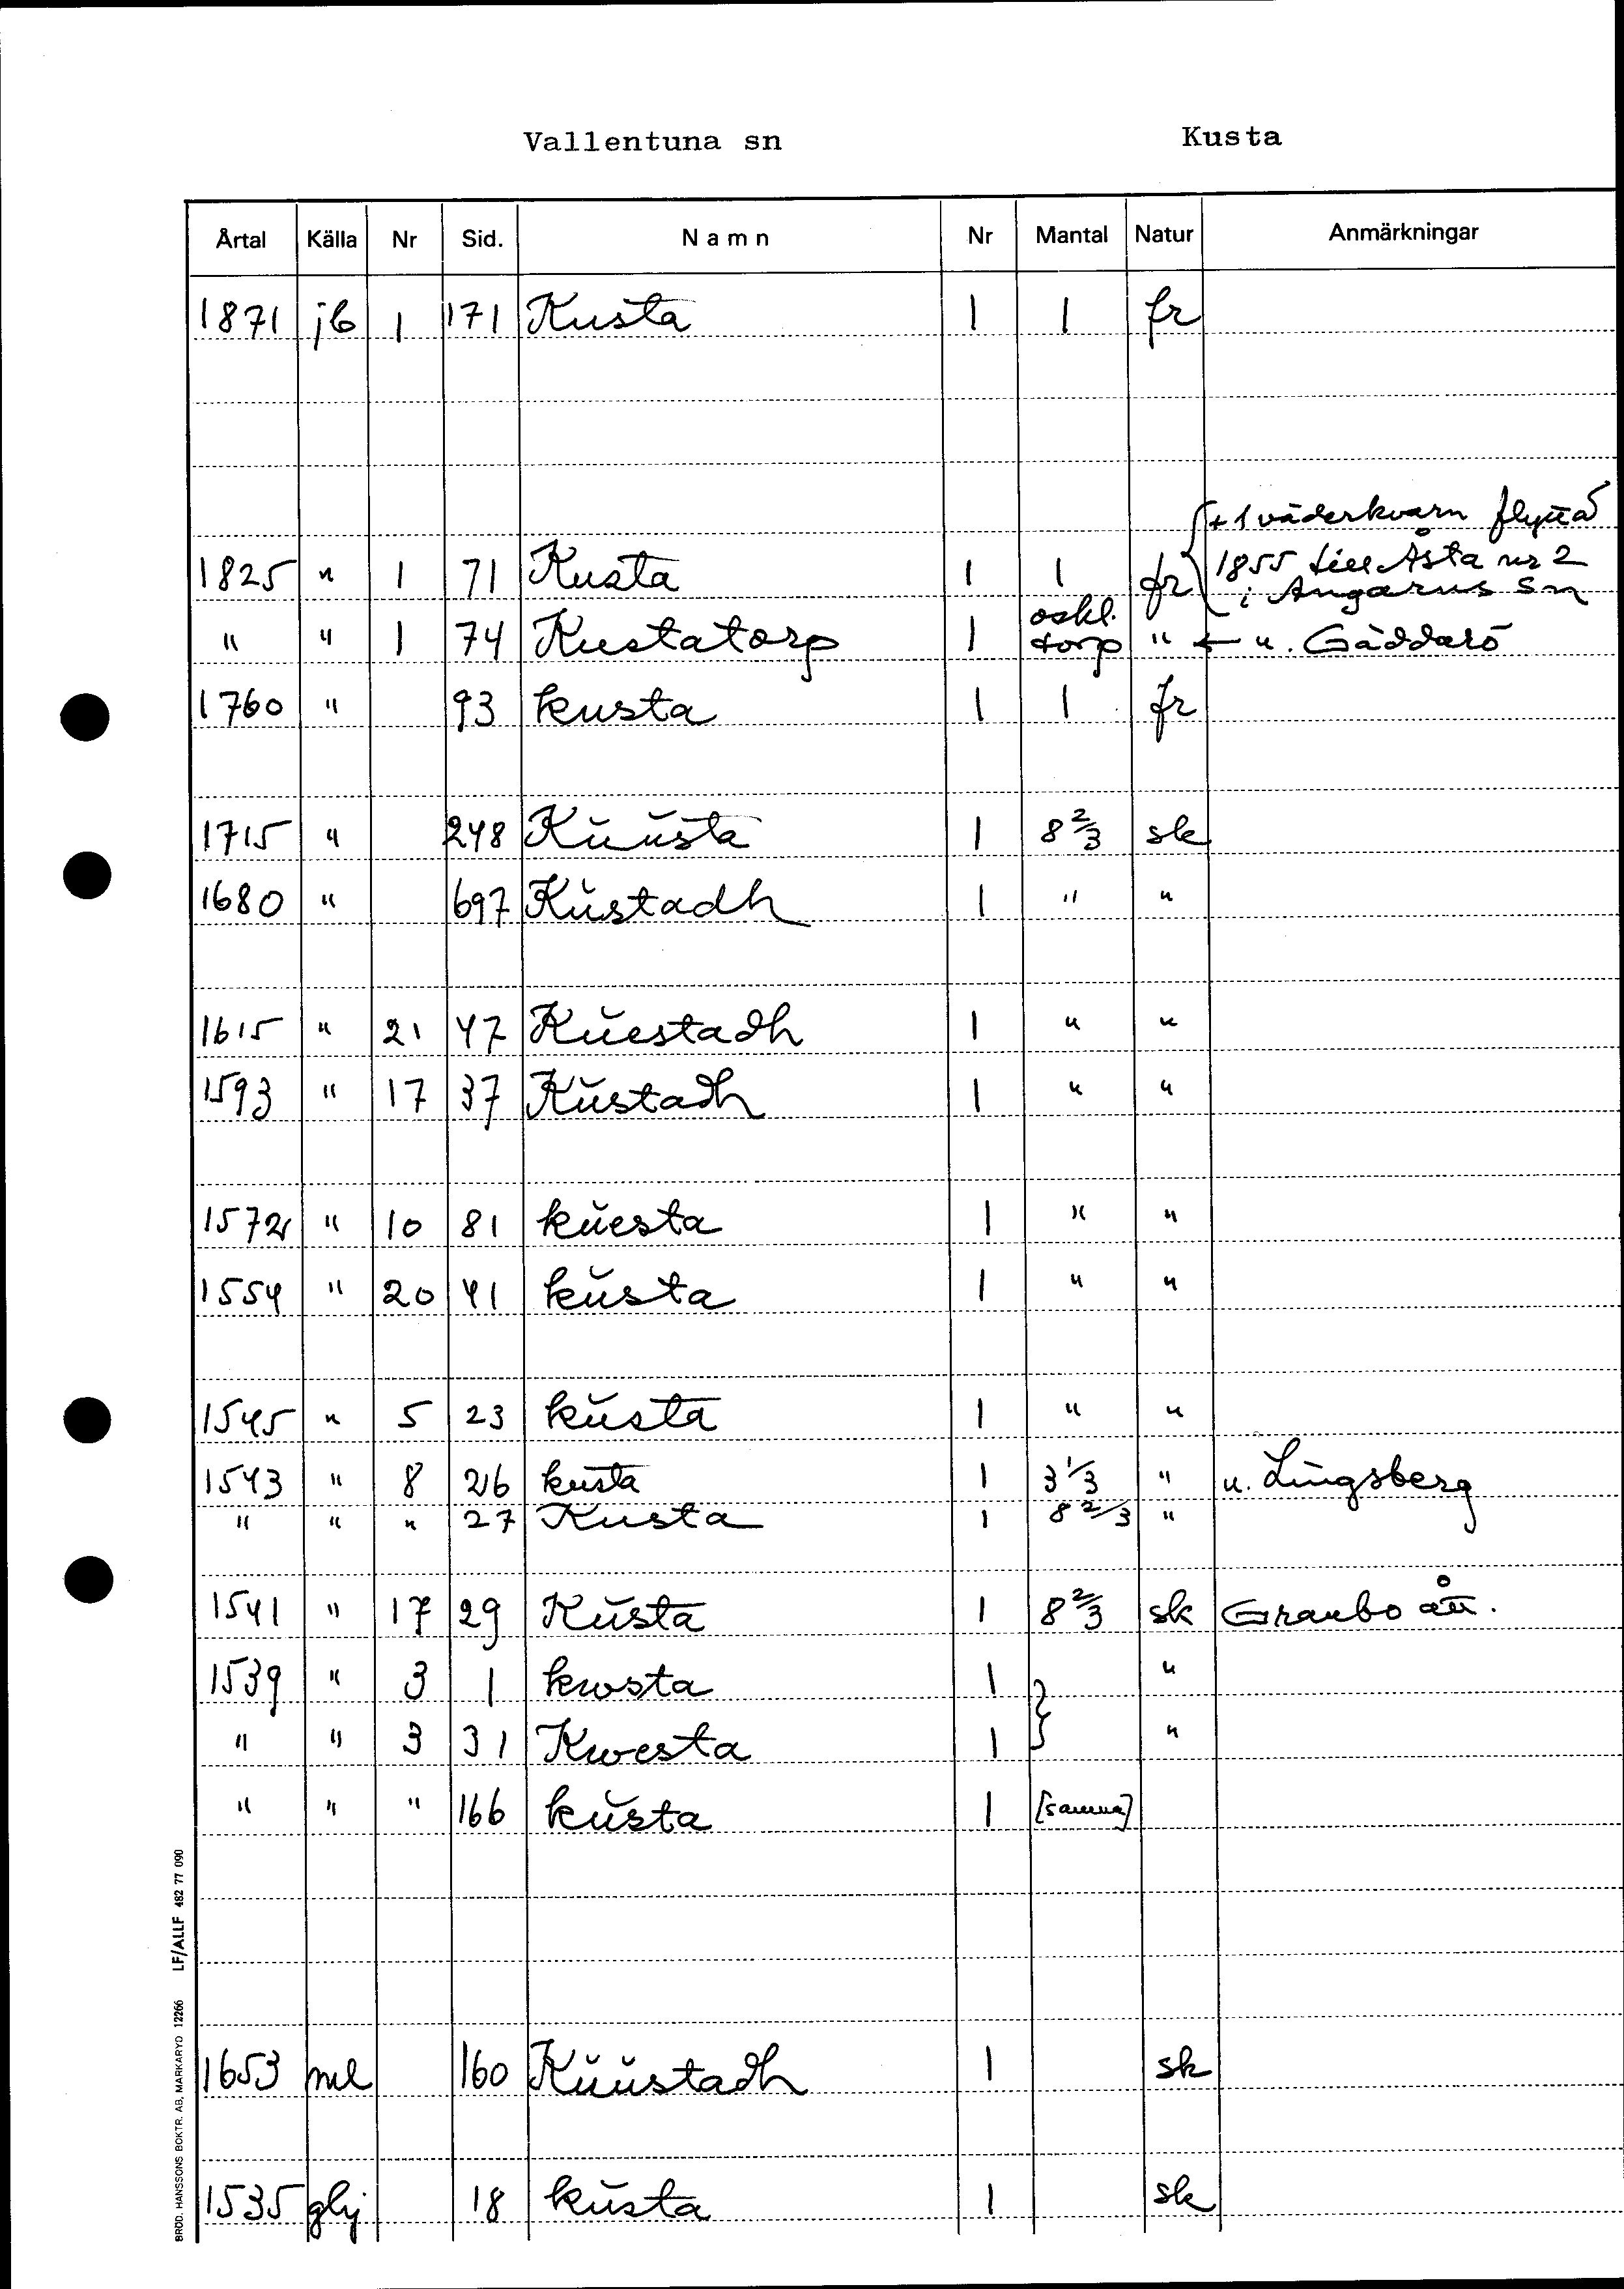 Vallentuna sn Kusta
Årtal Källa Nr Sid. Namn Nr Mantal Natur Anmärkningar
1871 jb 1 171 Kusta 1 1 fr
+ 1 väderkvarn flyttad
1825 " 1 71 Kusta 1 1 fr 1855 till Åsta nr 2
i Angarns sn
oskl.
" " 1 74 Kustatorp 1 torp " ← u. Gäddarö
1760 " 93 kusta 1 1 fr
1715 " 248 Kŭŭsta 1 8 2/3 sk
1680 " 697 Kŭstadh 1 " "
1615 " 21 47 Kŭestadh 1 " "
1593 " 17 37 Kŭstadh 1 " "
1572 " 10 81 kŭesta 1 " "
1554 " 20 41 kŭsta 1 " "
1545 " 5 23 kŭsta 1 " "
1543 " 8 26 kusta 1 3 1/3 " u. Lingsberg
" " " 27 Kusta 1 8 2/3 "
1541 " 17 29 Kŭsta 1 8 2/3 sk Granbo ått.
1539 " 3 1 kwsta 1 } "
" " 3 31 Kwesta 1 "
" " " 166 kŭsta 1 [samma]
1653 ml 160 Kŭŭstadh 1 sk
1535 ghj 18 kŭsta 1 sk
BRÖD. HANSSONS BOKTR. AB, MARKARYD 12266 LF/ALLF 482 77 090